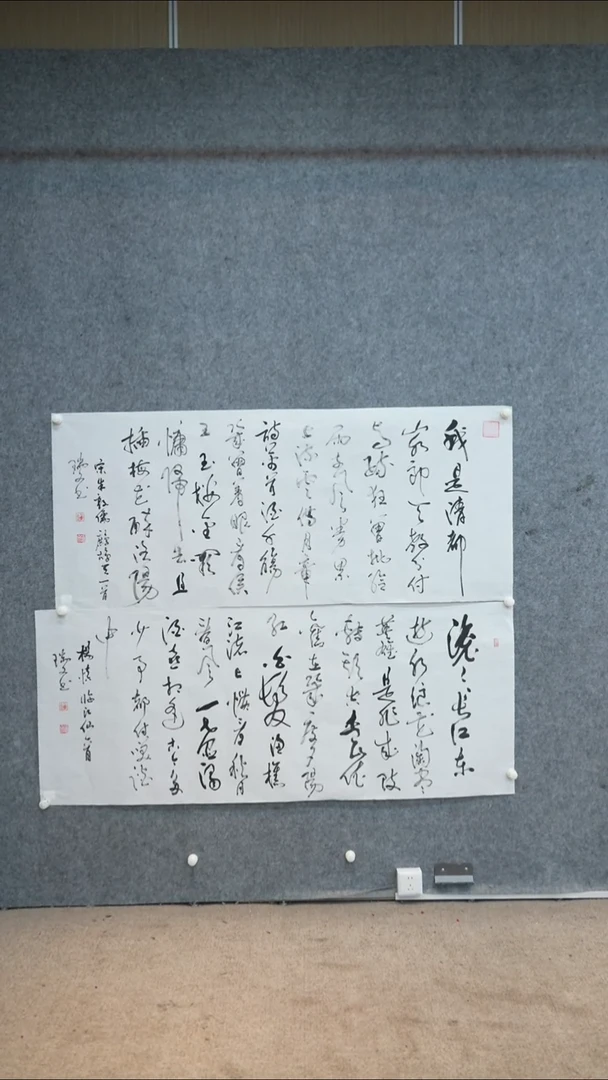 我是清都
山水郎天教分付
与疏狂曾批给
雨支风券累
上留雲借月章
詩萬首酒千觴
幾曾着眼看侯
王玉樓金闕
慵归去且
插梅花醉洛陽
宋朱敦儒鹧鸪天一首
滚滚长江东
逝水浪花淘尽
英雄是非成败
转頭空青山依
舊在幾度夕陽
红白髮渔樵
江渚上惯看秋月
春风一壶濁
酒喜相逢古今多
少事都付笑谈
中
楊慎临江仙一首